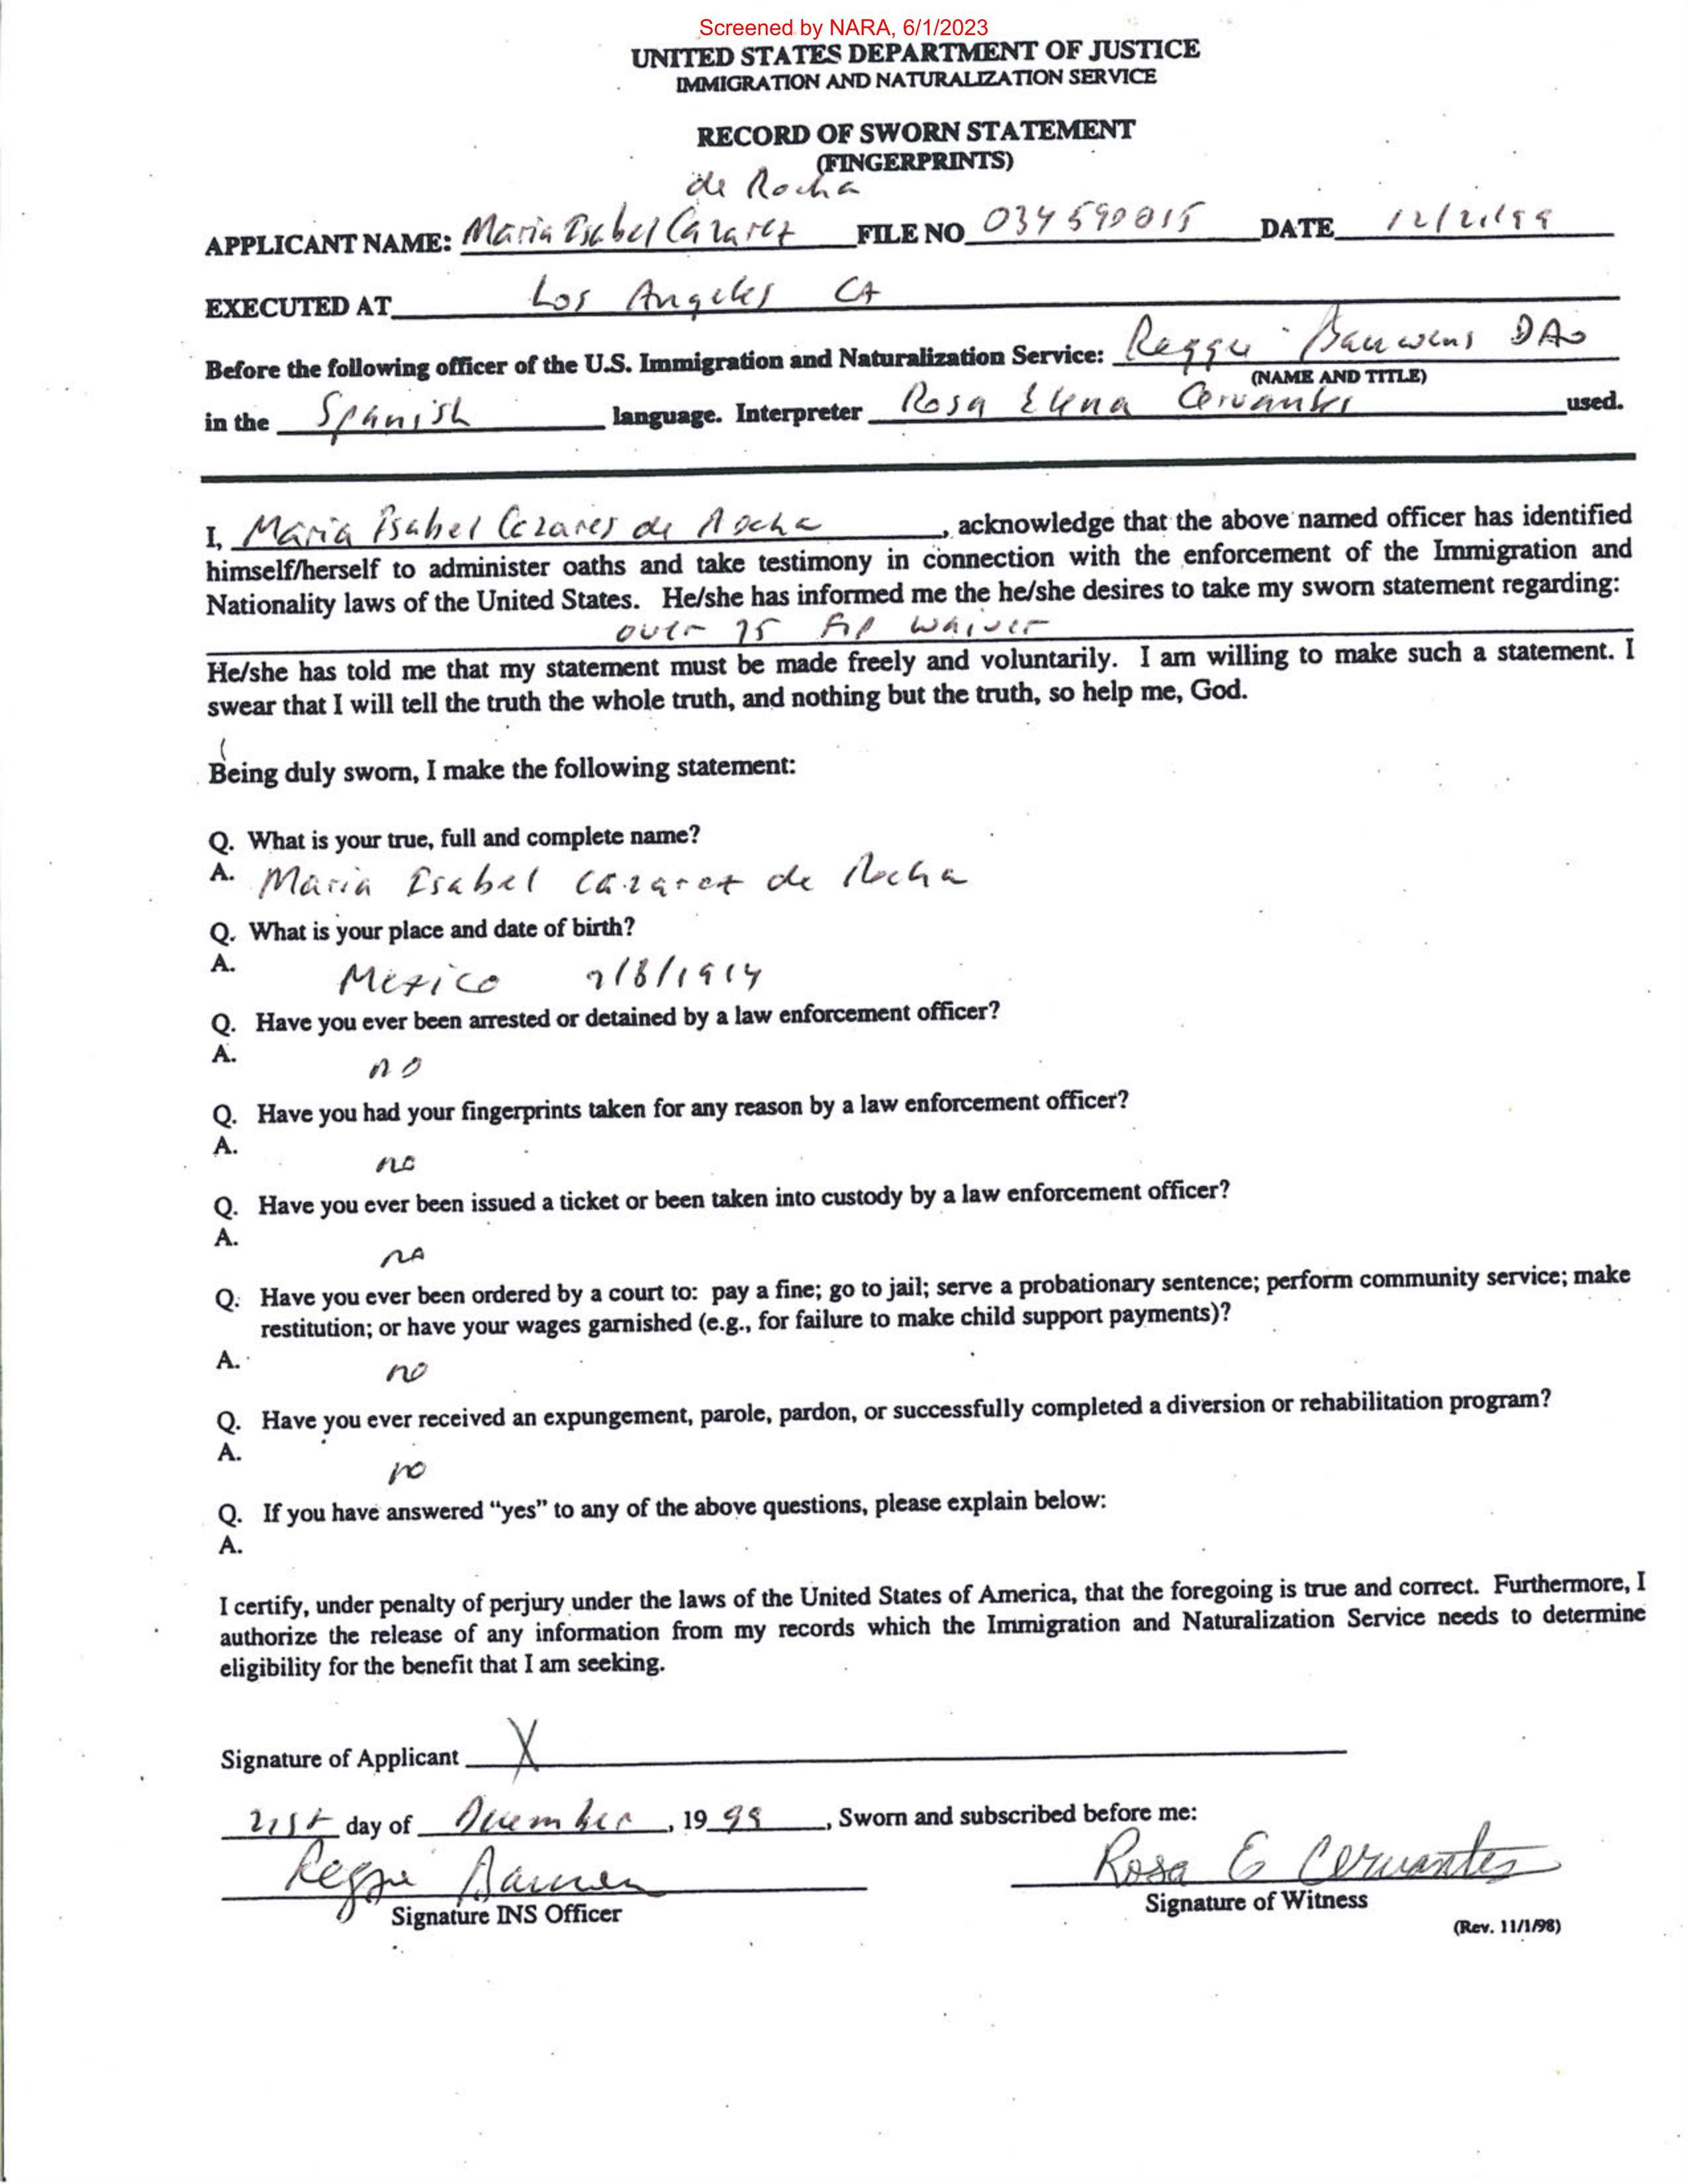 Screened by NARA, 6/1/2023
UNITED STATES DEPARTMENT OF JUSTICE
IMMIGRATION AND NATURALIZATION SERVICE
RECORD OF SWORN STATEMENT
(FINGERPRINTS)
de Rocha
APPLICANT NAME: Maria Isabel Cazarez FILE NO 034590015 DATE 12/21/99
EXECUTED AT Los Angeles CA
Before the following officer of the U.S. Immigration and Naturalization Service: Reggie Bauwens DAO
(NAME AND TITLE)
in the Spanish language. Interpreter Rosa Elena Cervantes used.
I, Maria Isabel Cazares de Rocha, acknowledge that the above named officer has identified
himself/herself to administer oaths and take testimony in connection with the enforcement of the Immigration and
Nationality laws of the United States. He/she has informed me the he/she desires to take my sworn statement regarding:
over 75 F/P waiver
He/she has told me that my statement must be made freely and voluntarily. I am willing to make such a statement. I
swear that I will tell the truth the whole truth, and nothing but the truth, so help me, God.
Being duly sworn, I make the following statement:
Q. What is your true, full and complete name?
A. Maria Isabel Cazarez de Rocha
Q. What is your place and date of birth?
A.
Mexico /8/1914
Q. Have you ever been arrested or detained by a law enforcement officer?
A.
no
Q. Have you had your fingerprints taken for any reason by a law enforcement officer?
A.
no
Q. Have you ever been issued a ticket or been taken into custody by a law enforcement officer?
A.
no
Q. Have you ever been ordered by a court to: pay a fine; go to jail; serve a probationary sentence; perform community service; make
restitution; or have your wages garnished (e.g., for failure to make child support payments)?
A.
no
Q. Have you ever received an expungement, parole, pardon, or successfully completed a diversion or rehabilitation program?
A.
no
Q. If you have answered "yes" to any of the above questions, please explain below:
A.
I certify, under penalty of perjury under the laws of the United States of America, that the foregoing is true and correct. Furthermore, I
authorize the release of any information from my records which the Immigration and Naturalization Service needs to determine
eligibility for the benefit that I am seeking.
Signature of Applicant X
21st day of December, 1999, Sworn and subscribed before me:
Reggie Rosa E Cervantes
Signature INS Officer Signature of Witness
(Rev. 11/1/98)